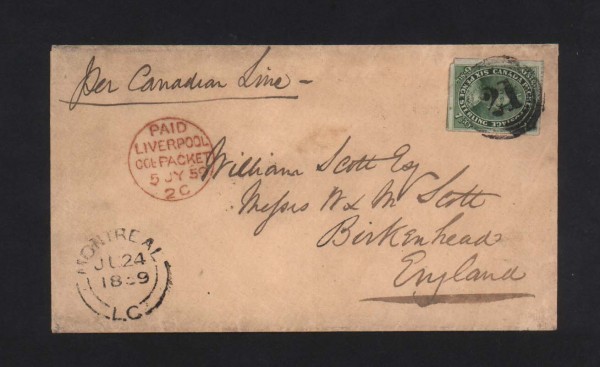 Per Canadian Line -
PAID
LIVERPOOL
COL PACKET
5 JY 59
2C
William Scott Esq
Messrs W & M Scott
Birkenhead
England
MONTREAL
JU 24
1859
L.C
CANADA
21